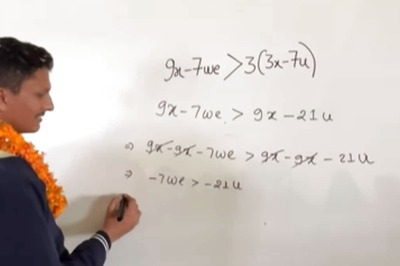 9x-7we>3(3x-7u)
9x-7we > 9x-21u
⇒ 9x-9x-7we > 9x-9x-21u
⇒ -7we > -21u